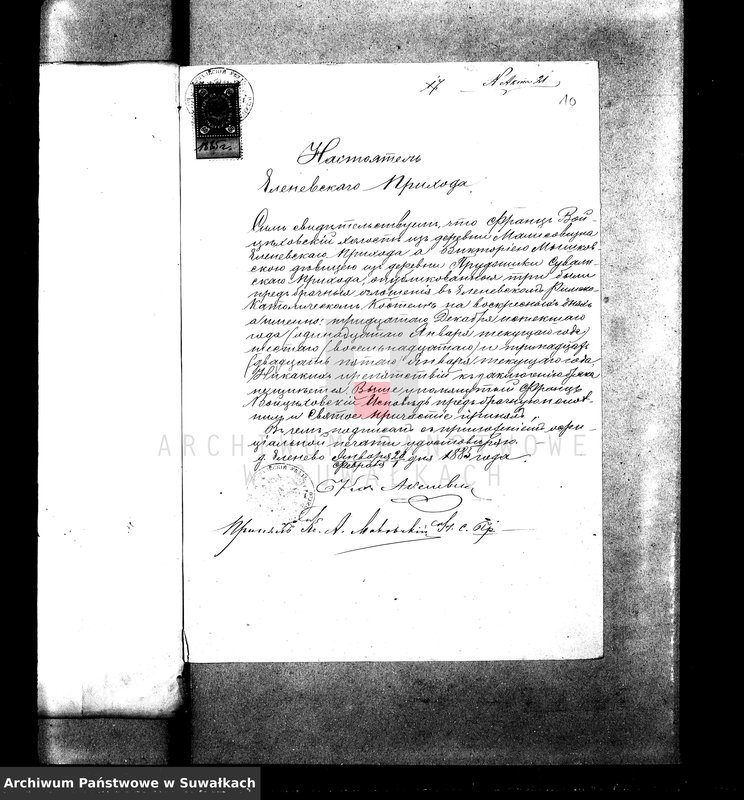 17 N Акта 21
10
1885 г.
Настоятель
Еленевскаго Прихода.
Симъ свидѣтельствуемъ, что Францъ Вой-
цѣховскій холостъ изъ деревни
Еленевскаго Прихода а Викторіею
скою дѣвицею изъ деревни Прудзишки Суваль-
скаго Прихода, опубликованныя три были
предбрачныя оглашенія въ Еленевскомъ Римско
Католическомъ Костелѣ на воскресныхъ дняхъ
а именно: тридцатаго Декабря истекшаго
года (одинадцатаго Января текущаго года)
шестаго (восемьнадцатаго) и тринадцат
(двадцать пятаго Января текущаго года.
Никакихъ препятствій къ заключенію брака
Выше упомянутый Францъ
Войцѣховскій Исповѣдь предъ-брачную исп
и Святое Причастіе принялъ.
Въ чемъ подписомъ съ приложеніемъ оффи-
ціальной печати удостовѣряю.
д. Еленево Января 20 дня 1885 года.
Февраля 1
Принялъ Кс. А. Н. С. Гр.
ARCHIWUM PAŃSTWOWE
W SUWAŁKACH
Archiwum Państwowe w Suwałkach